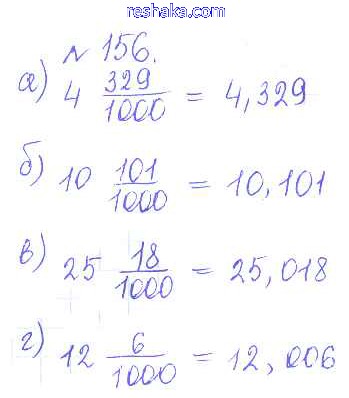 reshaka.com
№ 156.
а) 4 329/1000 = 4,329
б) 10 101/1000 = 10,101
в) 25 18/1000 = 25,018
г) 12 6/1000 = 12,006